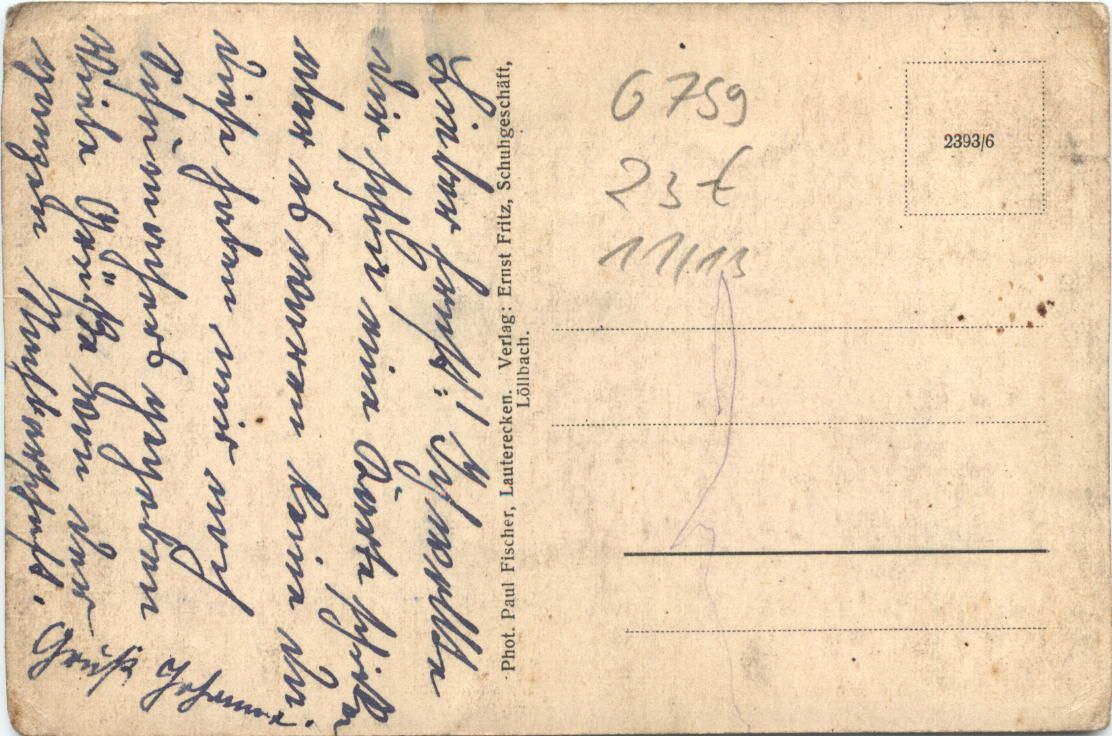 Lieber Horst! Ich wollte
Dir schon eine Karte
Aber es waren keine da
Diese haben wir
gegeben
Viele Grüße von der
ganzen Nachbarschaft.
Gruß Johanna.
Phot. Paul Fischer, Lauterecken. Verlag: Ernst Fritz, Schuhgeschäft,
Löllbach.
6759
23 €
11/13
2393/6